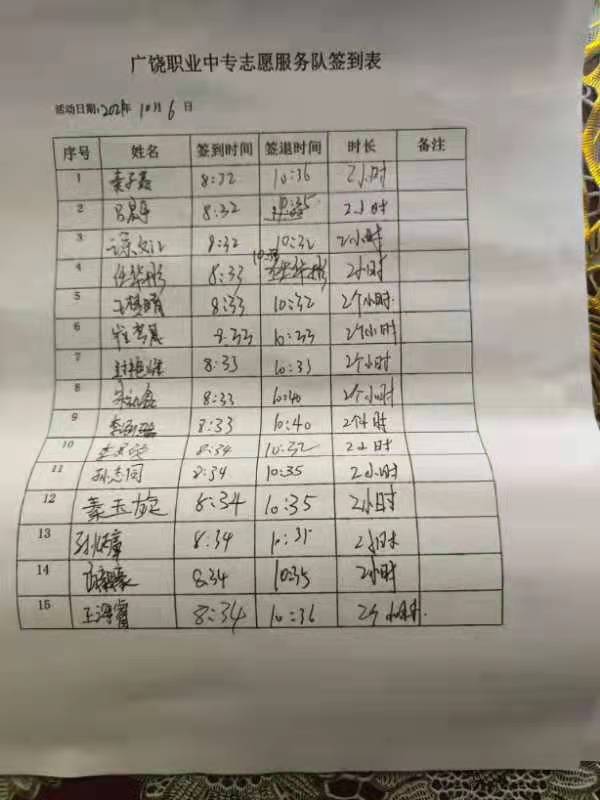 广饶职业中专志愿服务队签到表
活动日期:2021年 10月 6 日
序号 姓名 签到时间 签退时间 时长 备注
1 8:32 10:36 2小时
2 8:32 10:35 2小时
3 8:32 10:32 2小时
4 任华彬 8:33 10:35 2小时
5 王梦晴 8:33 10:32 2个小时
6 8:33 10:33 2个小时
7 8:33 10:33 2个小时
8 8:33 10:40 2个小时
9 8:33 10:40 2个时
10 8:34 10:32 2小时
11 孙志同 8:34 10:35 2小时
12 秦玉旋 8:34 10:35 2小时
13 8:34 10:35 2小时
14 8:34 10:35 2小时
15 王海睿 8:34 10:36 2个小时.